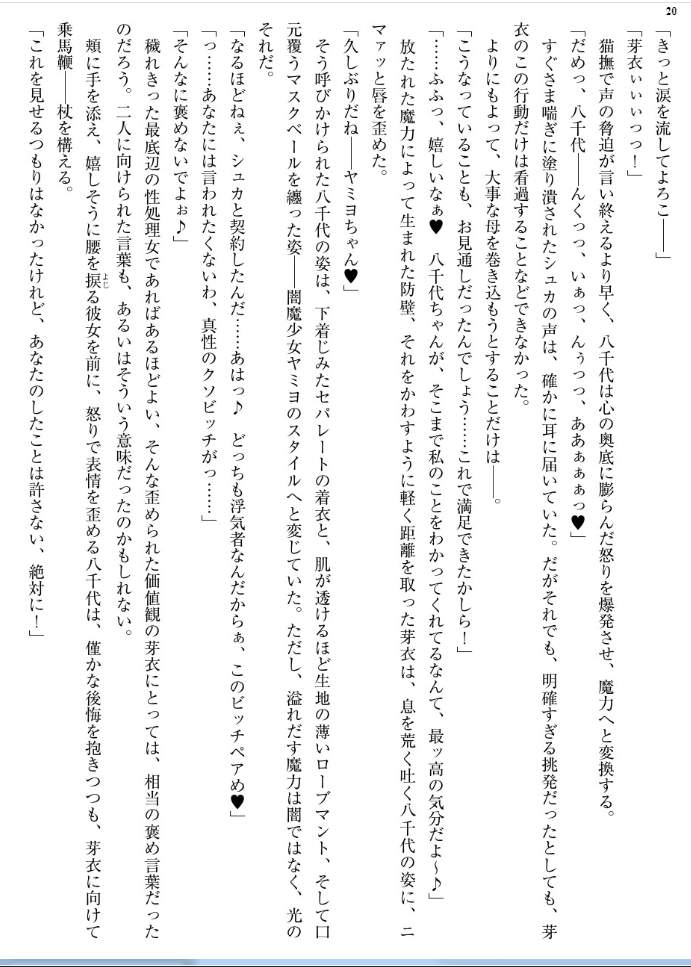 20
「きっと涙を流してよろこ――」
「芽衣ぃぃぃっっ！」
猫撫で声の脅迫が言い終えるより早く、八千代は心の奥底に膨らんだ怒りを爆発させ、魔力へと変換する。
「だめっ、八千代――んくっっ、いぁっ、んぅっっ、ああぁぁぁっ♥」
すぐさま喘ぎに塗り潰されたシュカの声は、確かに耳に届いていた。だがそれでも、明確すぎる挑発だったとしても、芽
衣のこの行動だけは看過することなどできなかった。
よりにもよって、大事な母を巻き込もうとすることだけは――。
「こうなっていることも、お見通しだったんでしょう……これで満足できたかしら！」
「……ふふっ、嬉しいなぁ♥　八千代ちゃんが、そこまで私のことをわかってくれてるなんて、最ッ高の気分だよ～♪」
放たれた魔力によって生まれた防壁、それをかわすように軽く距離を取った芽衣は、息を荒く吐く八千代の姿に、ニ
マァッと唇を歪めた。
「久しぶりだね――ヤミヨちゃん♥」
そう呼びかけられた八千代の姿は、下着じみたセパレートの着衣と、肌が透けるほど生地の薄いローブマント、そして口
元覆うマスクベールを纏った姿――闇魔少女ヤミヨのスタイルへと変じていた。ただし、溢れだす魔力は闇ではなく、光の
それだ。
「なるほどねぇ、シュカと契約したんだ……あはっ♪　どっちも浮気者なんだからぁ、このビッチペアめ♥」
「っ……あなたには言われたくないわ、真性のクソビッチがっ……」
「そんなに褒めないでよぉ♪」
穢れきった最底辺の性処理女であればあるほどよい、そんな歪められた価値観の芽衣にとっては、相当の褒め言葉だった
のだろう。二人に向けられた言葉も、あるいはそういう意味だったのかもしれない。
頬に手を添え、嬉しそうに腰を捩よじる彼女を前に、怒りで表情を歪める八千代は、僅かな後悔を抱きつつも、芽衣に向けて
乗馬鞭――杖を構える。
「これを見せるつもりはなかったけれど、あなたのしたことは許さない、絶対に！」